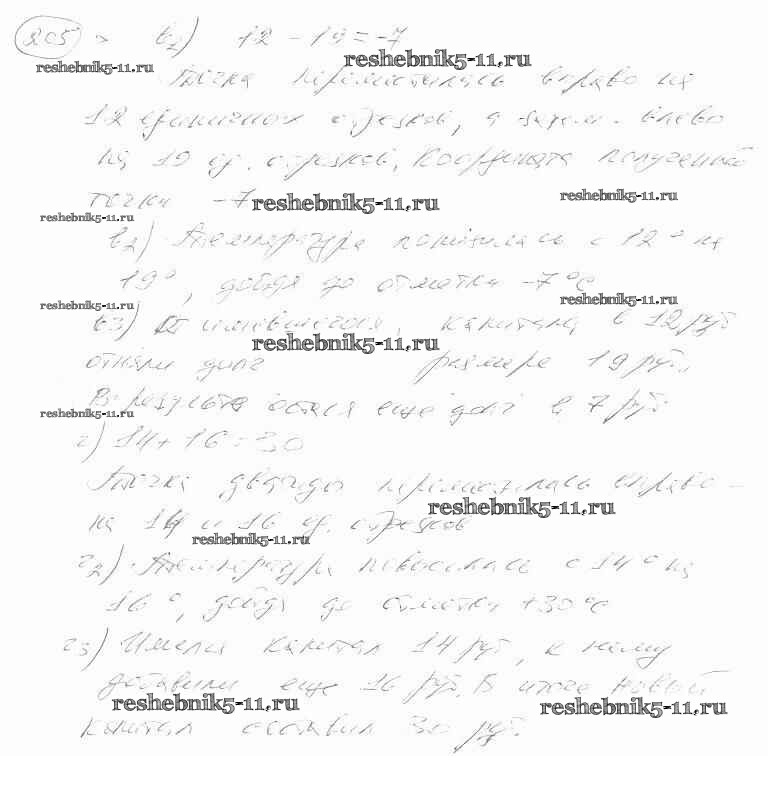 205 в1) 12 - 19 = -7
reshebnik5-11.ru reshebnik5-11.ru
Точка переместилась вправо на
12 единичных отрезков, а затем влево
на 19 ед. отрезков, координата полученной
точки -7
reshebnik5-11.ru reshebnik5-11.ru reshebnik5-11.ru
в2) Температура понизилась с 12° на
19°, дойдя до отметки -7°С
reshebnik5-11.ru reshebnik5-11.ru
в3) имевшегося, капитала в 12 руб
reshebnik5-11.ru
отняли долг размере 19 руб.,
В результате остался еще долг в 7 руб.
reshebnik5-11.ru
г) 14 + 16 = 30
Точка дважды переместилась вправо -
reshebnik5-11.ru
на 14 и 16 ед. отрезков
reshebnik5-11.ru
г2) Температура повысилась с 14° на
16°, дойдя до отметки +30°С
г3) Имелся капитал 14 руб, к нему
добавили еще 16 руб. В итоге новый
reshebnik5-11.ru reshebnik5-11.ru
капитал составил 30 руб.